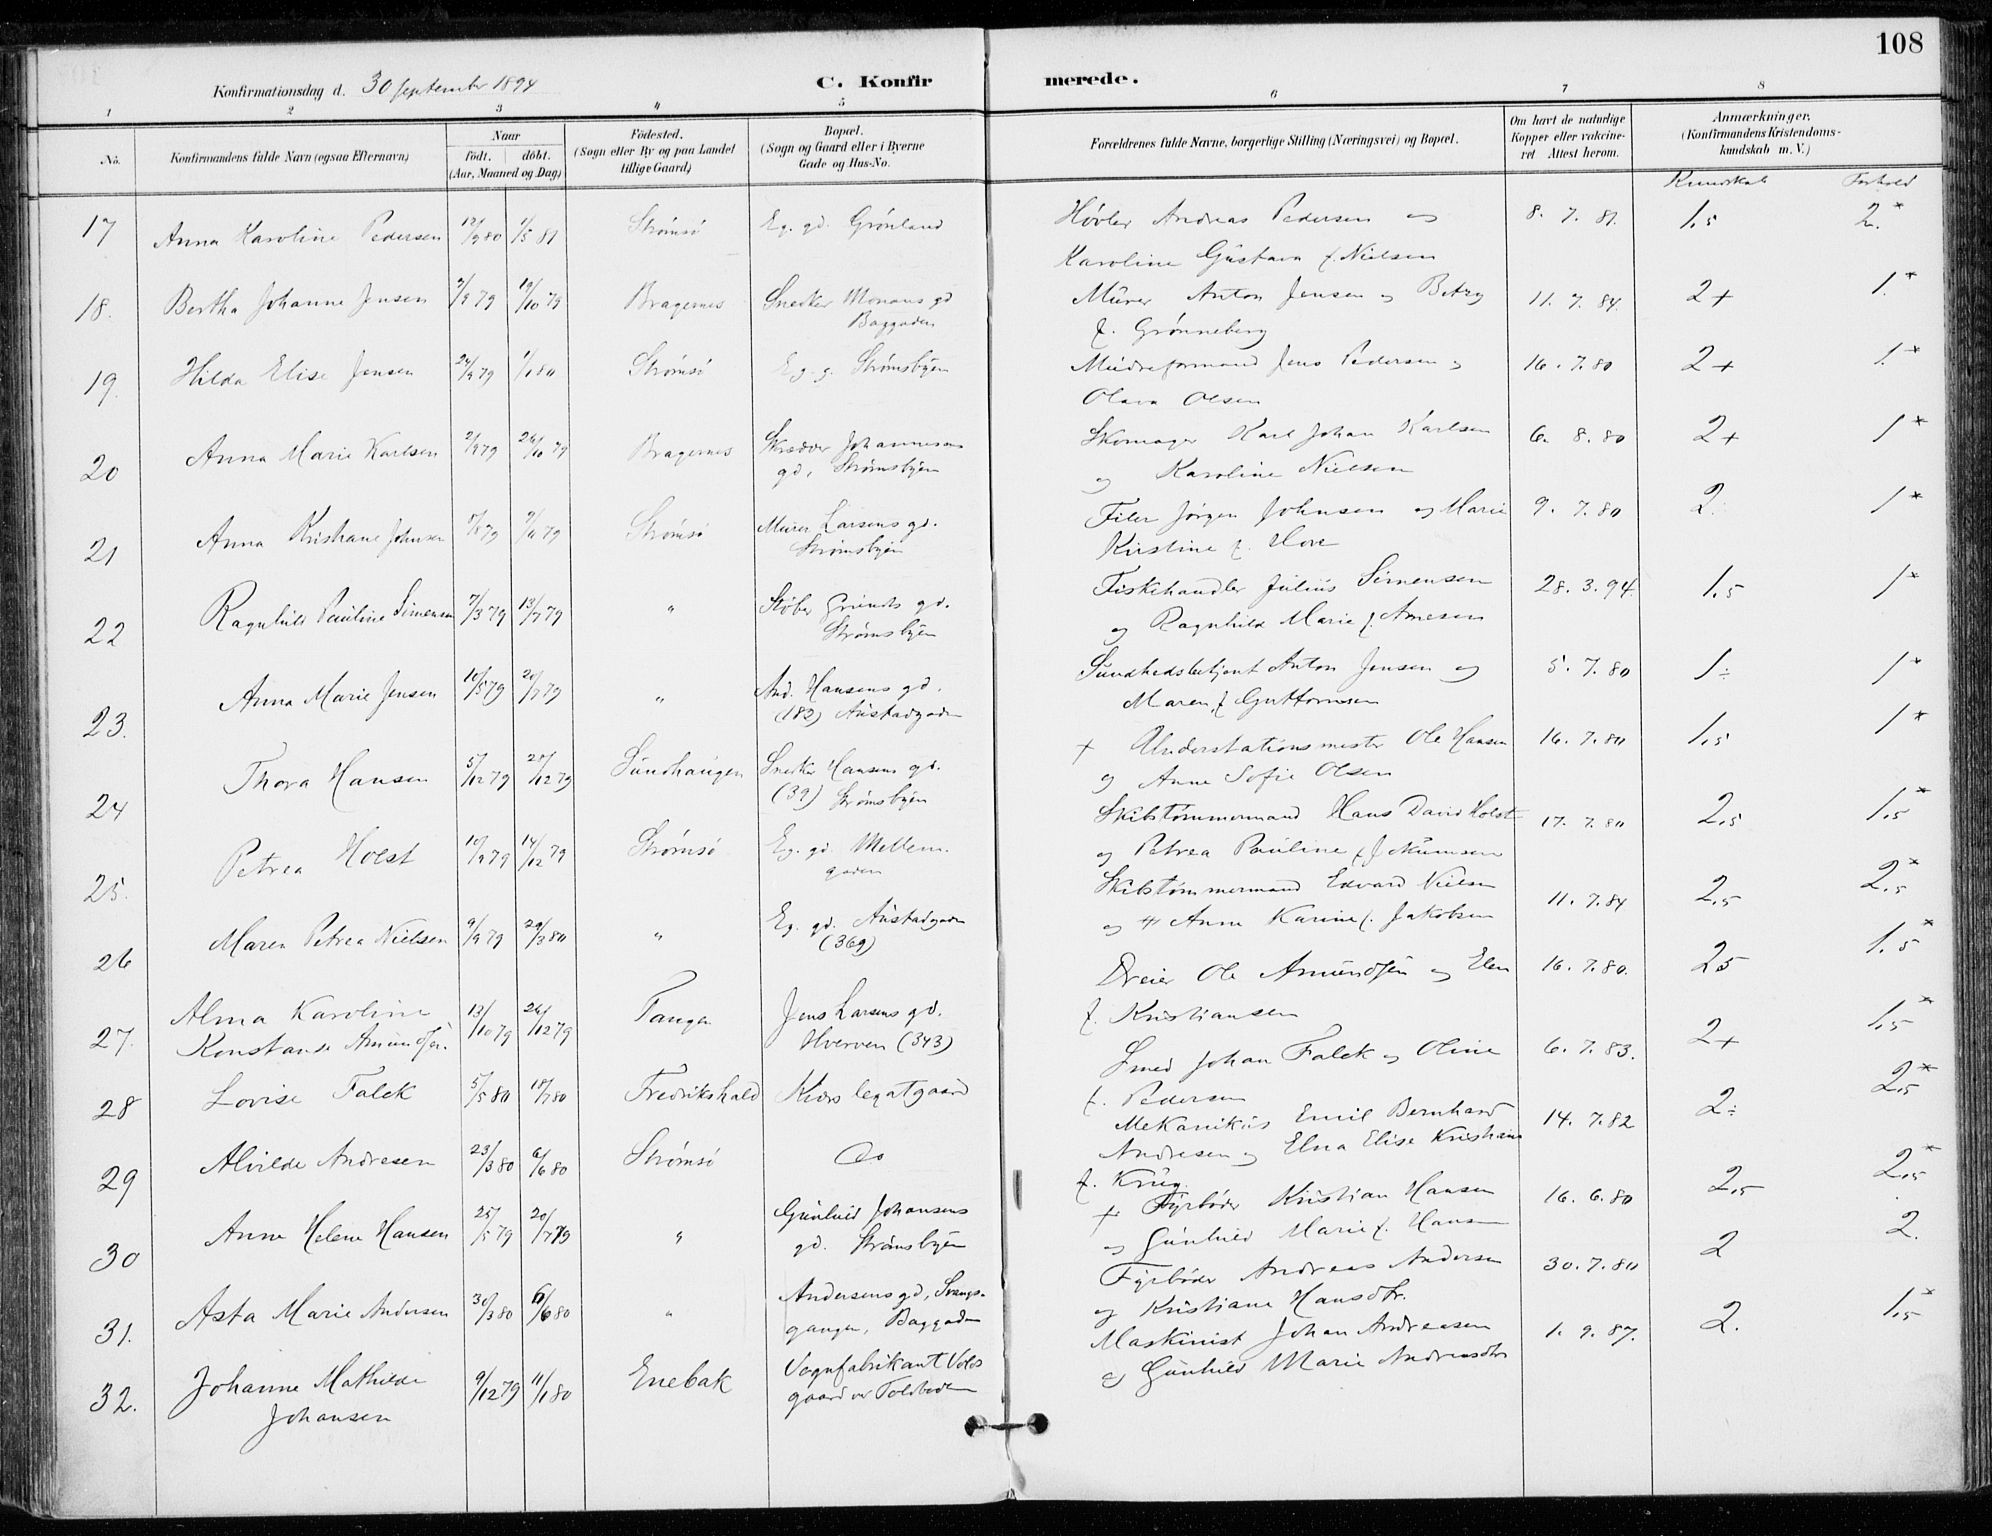 108
Konfirmationsdag d. 30 September 1894
C. Konfirmerede.
1 2 3 4 5 6 7 8
No. Konfirmandens fulde Navn (ogsaa Efternavn) Naar födt. döbt. (Aar, Maaned og Dag) Födested. (Sogn eller By og paa Landet tillige Gaard) Bopæl. (Sogn og Gaard eller i Byerne Gade og Hus-No. Forældrenes fulde Navne, borgerlige Stilling (Næringsvei) og Bopæl. Om havt de naturlige Kopper eller vakcineret Attest herom. Anmærkninger. (Konfirmandens Kristendomskundskab m. V.)
Kundskab Forhold
17 Anna Karoline Pedersen 12/9 80 1/5 81 Strømsø Eg. gd. Grønland Høvler Andreas Pedersen og 8. 7. 81. 1,5 2.*
Karoline Gustava f. Nielsen
18. Bertha Johanne Jensen 2/9 79 19/10 79 Bragernes Snedker Monans gd Murer Anton Jensen og Betzy 11. 7. 84. 2+ 1.*
Baggaden f. Grønneberg
19. Hilda Elise Jensen 24/9 79 1/1 80 Strømsø Eg. g. Strømsbyen Mudreformand Jens Pedersen og 16. 7. 80 2+ 1.*
Olava Olsen
20 Anna Marie Karlsen 2/9 79 26/10 79 Bragernes Skræder Johannesens Skomager Karl Johan Karlsen 6. 8. 80 2+ 1*
gd. Strømsbyen og Karoline Nielsen
21 Anna Kristiane Johnsen 7/8 79 9/11 79 Strømsø Murer Larsens gd. Filer Jørgen Johnsen og Marie 9. 7. 80 2. 1*
Strømsbyen Kirstine f. Hove
22 Ragnhild Pauline Simensen 7/3 79 13/7 79 " Støber Grunds gd. Fiskehandler Julius Simensen 28. 3. 94 1,5 1*
Strømsbyen og Ragnhild Marie f. Arnesen
23. Anna Marie Jensen 10/5 79 20/7 79 " And. Hansens gd. Sundhedsbetjent Anton Jensen og 5. 7. 80 1÷ 1*
(182) Austadgaden Maren f Guttormsen
24 Thora Hansen 5/12 79 28/12 79 Sundhaugen Snedker Hansens gd. + Understationsmester Ole Hansen 16. 7. 80 1,5 1*
(32) Strømsbyen og Anne Sofie Olsen
25. Petrea Holst 10/9 79 14/12 79 Strømsø Eg. gd. Mellem- Skibstømmermand Hans David Holst 17. 7. 80 2,5 1,5*
gaden og Petrea Pauline f.
26 Maren Petrea Nielsen 9/9 79 29/3 80 " Eg. gd. Austadgaden Skibstømmermand Edvard Nielsen 11. 7. 84 2,5 2,5*
(369) og Anne Karine f. Jakobsen
27. Alma Karoline 13/10 79 26/12 79 Tangen Jens Larsens gd. Dreier Ole Amundsen og Elen 16. 7. 80. 2 5 1.5*
Konstanse Amundsen. Hverven (343) f. Kristiansen
28 Lovise Falck 5/5 80 18/7 80 Fredrikshald Kiørs legatgaard Smed Johan Falck og Oline 6. 7. 83. 2+ 1,5*
f. Pedersen
29 Alvilde Andresen 23/3 80 6/6 80 Strømsø Do Mekanikus Emil Bernhard 14. 7. 82 2÷ 2,5*
Andresen og Elna Elise Kristiane
f. Krug.
30 Anne Helene Hansen 25/5 79 20/7 79 " Gunhild Johansens + Fyrbøder Kristian Hansen 16. 6. 80 2,5 2,5*
gd. Strømsbyen og Gunhild Marie f. Hansen
31. Asta Marie Andersen 30/3 80 6/6 80 " Andersens gd, Svangs- Fyrbøder Andreas Andersen 30. 7. 80 2 2.
gangen, Baggaden og Kristiane Hansdtr.
32. Johanne Mathilde 9/12 79 11/1 80 Enebak Vognfabrikant Volds Maskinist Johan Andreasen 1. 9. 87. 2. 1,5*
Johansen gaard ved Toldboden og Gunhild Marie Andreasdtr